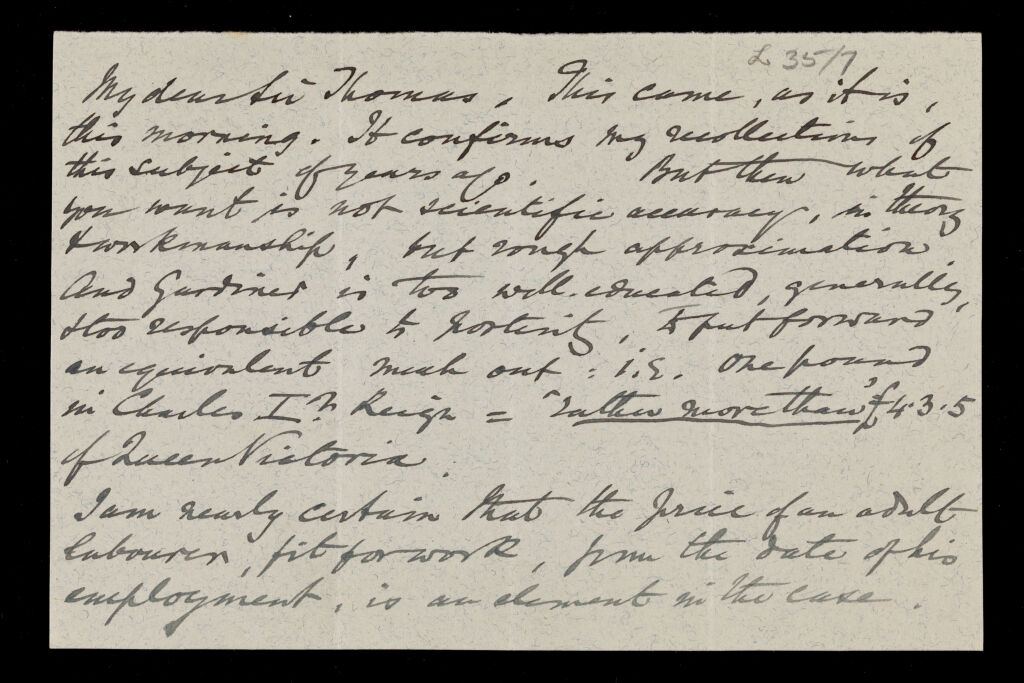 L 35/7
My dear Sir Thomas, This came, as it is,
this morning. It confirms my recollections of
this subject of years ago. But then what
you want is not scientific accuracy, in theory
& workmanship, but rough approximation
And Gardiner is too well-educated, generally,
& too responsible to posterity, to put forward
an equivalent out: i.e. One pound
in Charles Ist's Reign = "rather more than" £4.3.5
of Queen Victoria.
I am nearly certain that the price of an adult
labourer, fit for work, from the date of his
employment, is an element in the case.